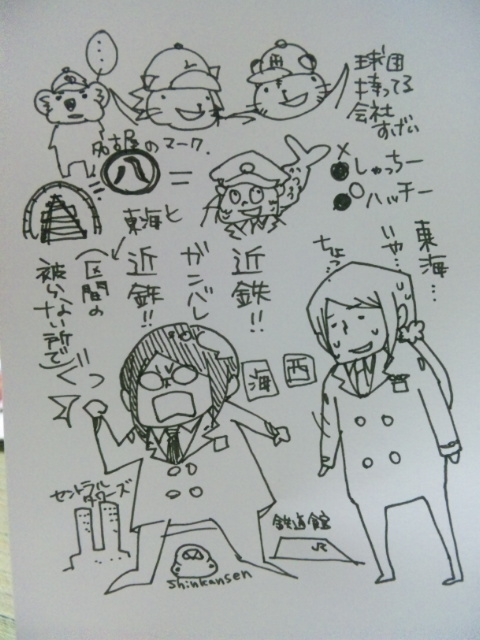 …
球団
持ってる
会社
すげい
名古屋のマーク.
八
=
× しゃっちー
○ ハッチー
東海と
近鉄!!
ガンバレ
近鉄!!
(区間の
被らない所で)
東海…
いや…
ちょっ
海
西
セントラル
タワーズ
鉄道館
JR
Shinkansen